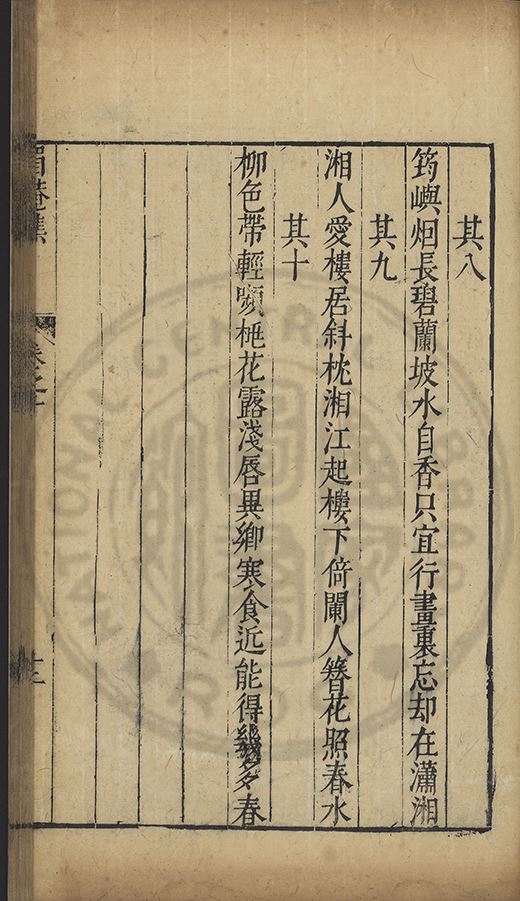 其八
筠嶼烟長碧蘭坡水自香只宜行畫裏忘却在瀟湘
其九
湘人愛樓居斜枕湘江起樓下倚闌人簪花照春水
其十
柳色帶輕嚬桃花露淺唇異鄉寒食近能得幾多春